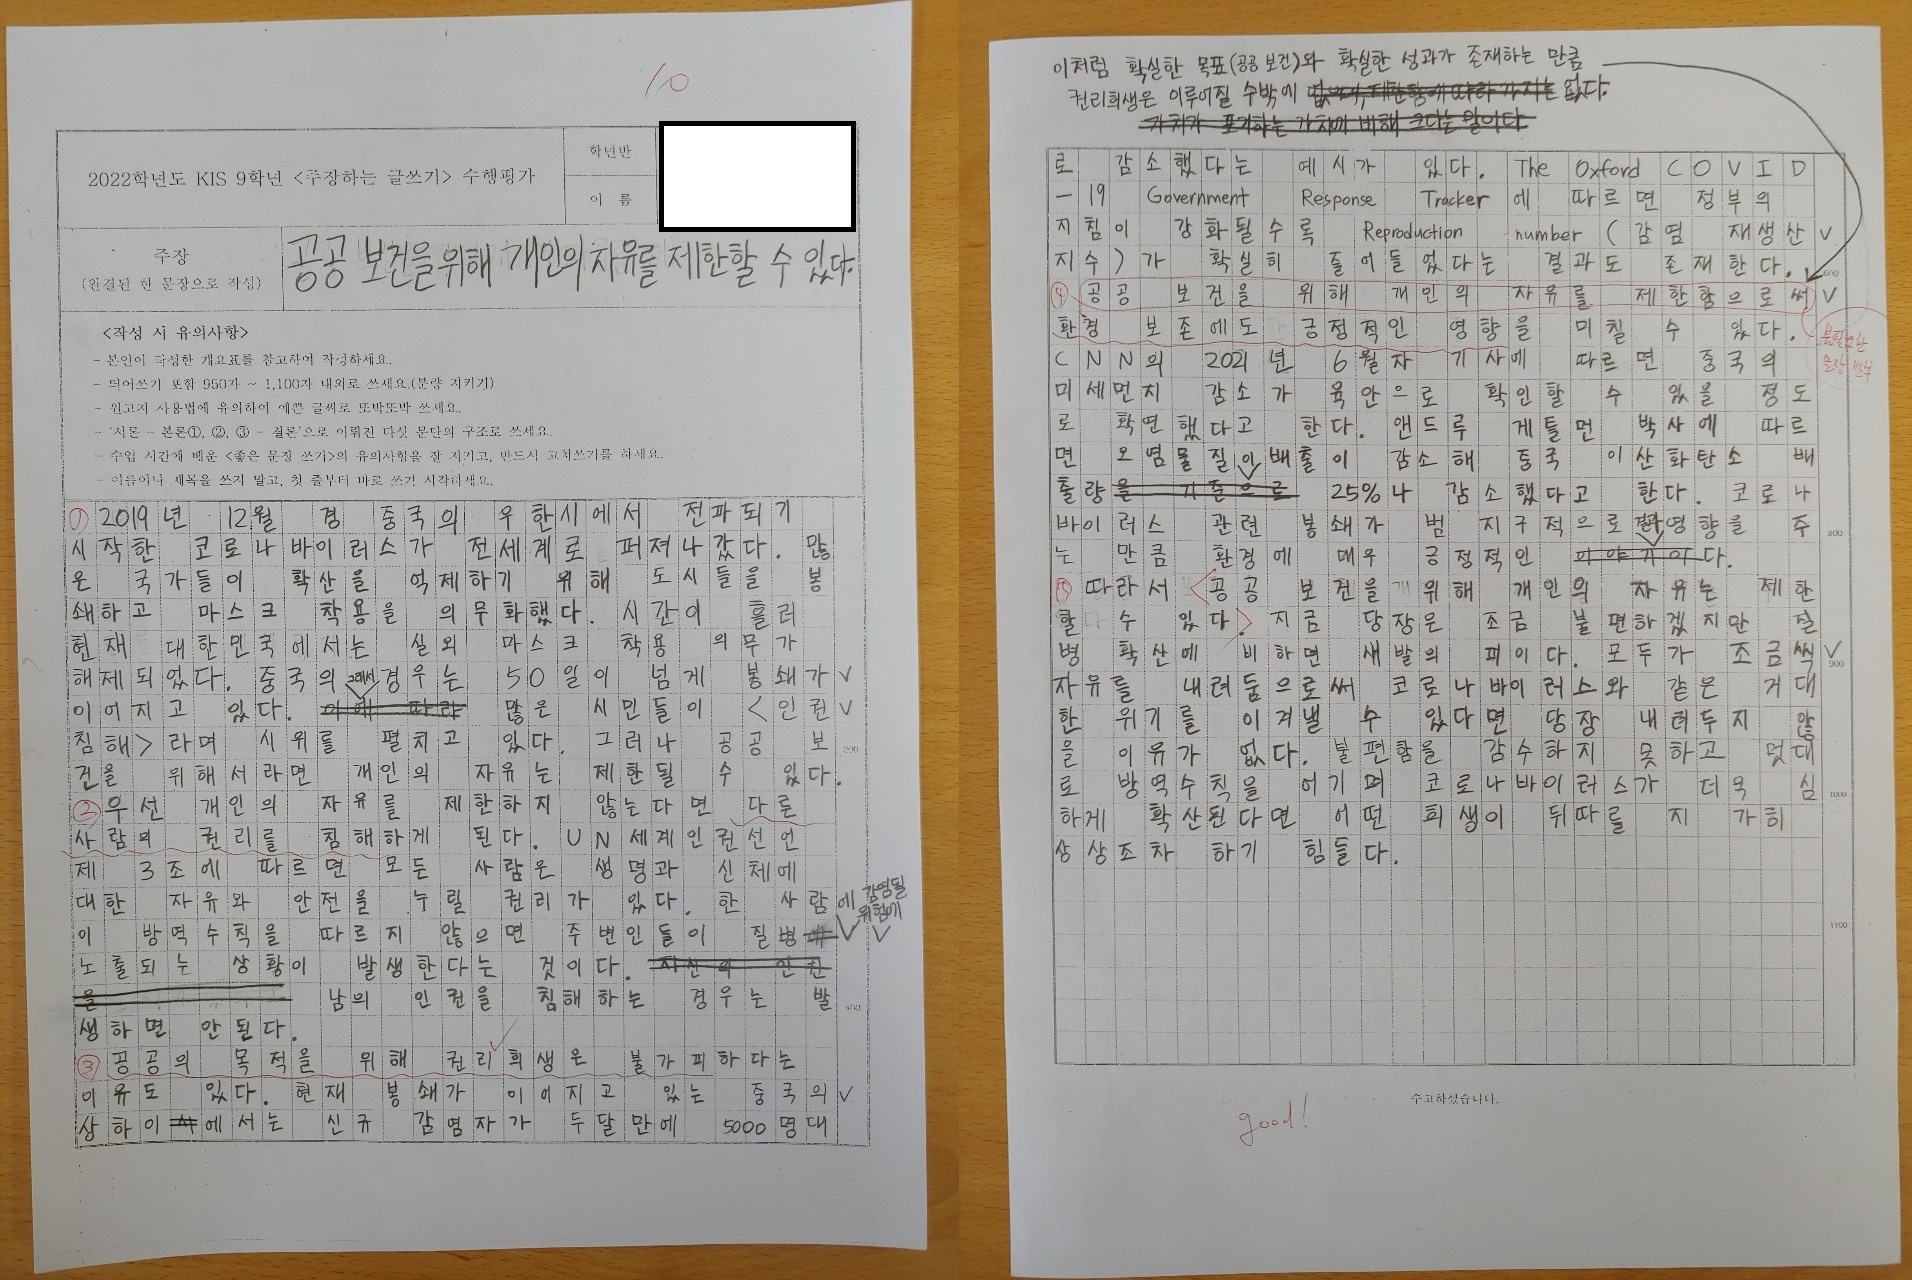 10
2022학년도 KIS 9학년 <주장하는 글쓰기> 수행평가
학년반
이 름
주장
(완결된 한 문장으로 작성)
공공 보건을 위해 개인의 자유를 제한할 수 있다.
<작성 시 유의사항>
- 본인이 작성한 개요표를 참고하여 작성하세요.
- 띄어쓰기 포함 950자 ~ 1,100자 내외로 쓰세요.(분량 지키기)
- 원고지 사용법에 유의하여 예쁜 글씨로 또박또박 쓰세요.
- '서론 - 본론①, ②, ③ - 결론'으로 이뤄진 다섯 문단의 구조로 쓰세요.
- 수업 시간에 배운 <좋은 문장 쓰기>의 유의사항을 잘 지키고, 반드시 고쳐쓰기를 하세요.
- 이름이나 제목을 쓰지 말고, 첫 줄부터 바로 쓰기 시작하세요.
① 2019년 12월 경 중국의 우한시에서 전파되기
시작한 코로나바이러스가 전세계로 퍼져나갔다. 많
은 국가들이 확산을 억제하기 위해 도시들을 봉
쇄하고 마스크 착용을 의무화했다. 시간이 흘러
현재 대한민국에서는 실외 마스크 착용 의무가
해제되었다. 중국의 경우는 50일이 넘게 봉쇄가 V
그래서
이어지고 있다. 이에 따라 많은 시민들이 <인권 V
침해> 라며 시위를 펼치고 있다. 그러나 공공 보 200
건을 위해서라면 개인의 자유는 제한될 수 있다.
② 우선 개인의 자유를 제한하지 않는다면 다른
사람의 권리를 침해하게 된다. UN세계인권선언
제 3조에 따르면 모든 사람은 생명과 신체에
대한 자유와 안전을 누릴 권리가 있다. 한 사람에
감염될
위험에
이 방역수칙을 따르지 않으면 주변인들이 질병에
노출되는 상황이 발생한다는 것이다. 자신의 인권
을 남의 인권을 침해하는 경우는 발 400
생하면 안된다.
③ 공공의 목적을 위해 권리희생은 불가피하다는
이유도 있다. 현재 봉쇄가 이어지고 있는 중국의 V
상하이 에서는 신규 감염자가 두달만에 5000명대
이처럼 확실한 목표(공공 보건)와 확실한 성과가 존재하는 만큼
권리희생은 이루어질 수밖에 없다.
가치가 포기하는 가치에 비해 크다는 말이다.
로 감소했다는 예시가 있다. The Oxford COVID
-19 Government Response Tracker에 따르면 정부의
지침이 강화될수록 Reproduction number (감염 재생산 V
지수)가 확실히 줄어들었다는 결과도 존재한다. 600
④ 공공 보건을 위해 개인의 자유를 제한함으로써 V
환경 보존에도 긍정적인 영향을 미칠 수 있다.
불필요한
문장 반복
CNN의 2021년 6월자 기사에 따르면 중국의
미세먼지 감소가 육안으로 확인할 수 있을 정도
로 확연했다고 한다. 앤드루 게틀먼 박사에 따르
면 오염물질이 배출이 감소해 중국 이산화탄소 배
출량을 기준으로 25%나 감소했다고 한다. 코로나
바이러스 관련 봉쇄가 범 지구적으로 영향을 주 800
는 만큼 환경에 매우 긍정적인 이야기이다.
⑤ 따라서 공공 보건을 위해 개인의 자유는 제한
할 수 있다. 지금 당장은 조금 불편하겠지만 질
병 확산에 비하면 새발의 피이다. 모두가 조금씩 V 900
자유를 내려둠으로써 코로나바이러스와 같은 거대
한 위기를 이겨낼 수 있다면 당장 내려두지 않
을 이유가 없다. 불편함을 감수하지 못하고 멋대
로 방역수칙을 어기며 코로나바이러스가 더욱 심 1000
하게 확산된다면 어떤 희생이 뒤따를 지 가히
상상조차 하기 힘들다.
1100
수고하셨습니다.
good!